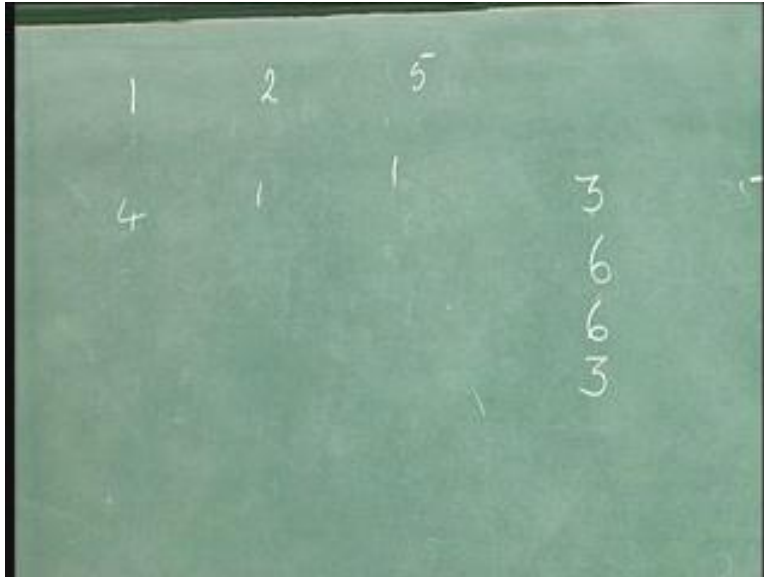 1 2 5
4 1 1 3 5
6
6
3